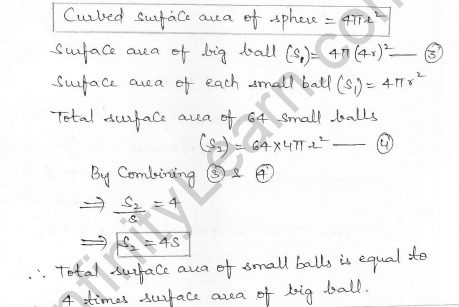 Curved surface area of sphere = 4πr²
Surface area of big ball (S₁) = 4π(4r)² — ③
Surface area of each small ball (S₁) = 4πr²
Total surface area of 64 small balls
(S₂) = 64×4πr² — ④
By Combining ③ & ④
⟹ S₂/S = 4
⟹ S₂ = 4S
∴ Total surface area of small balls is equal to
4 times surface area of big ball.
InfinityLearn.com